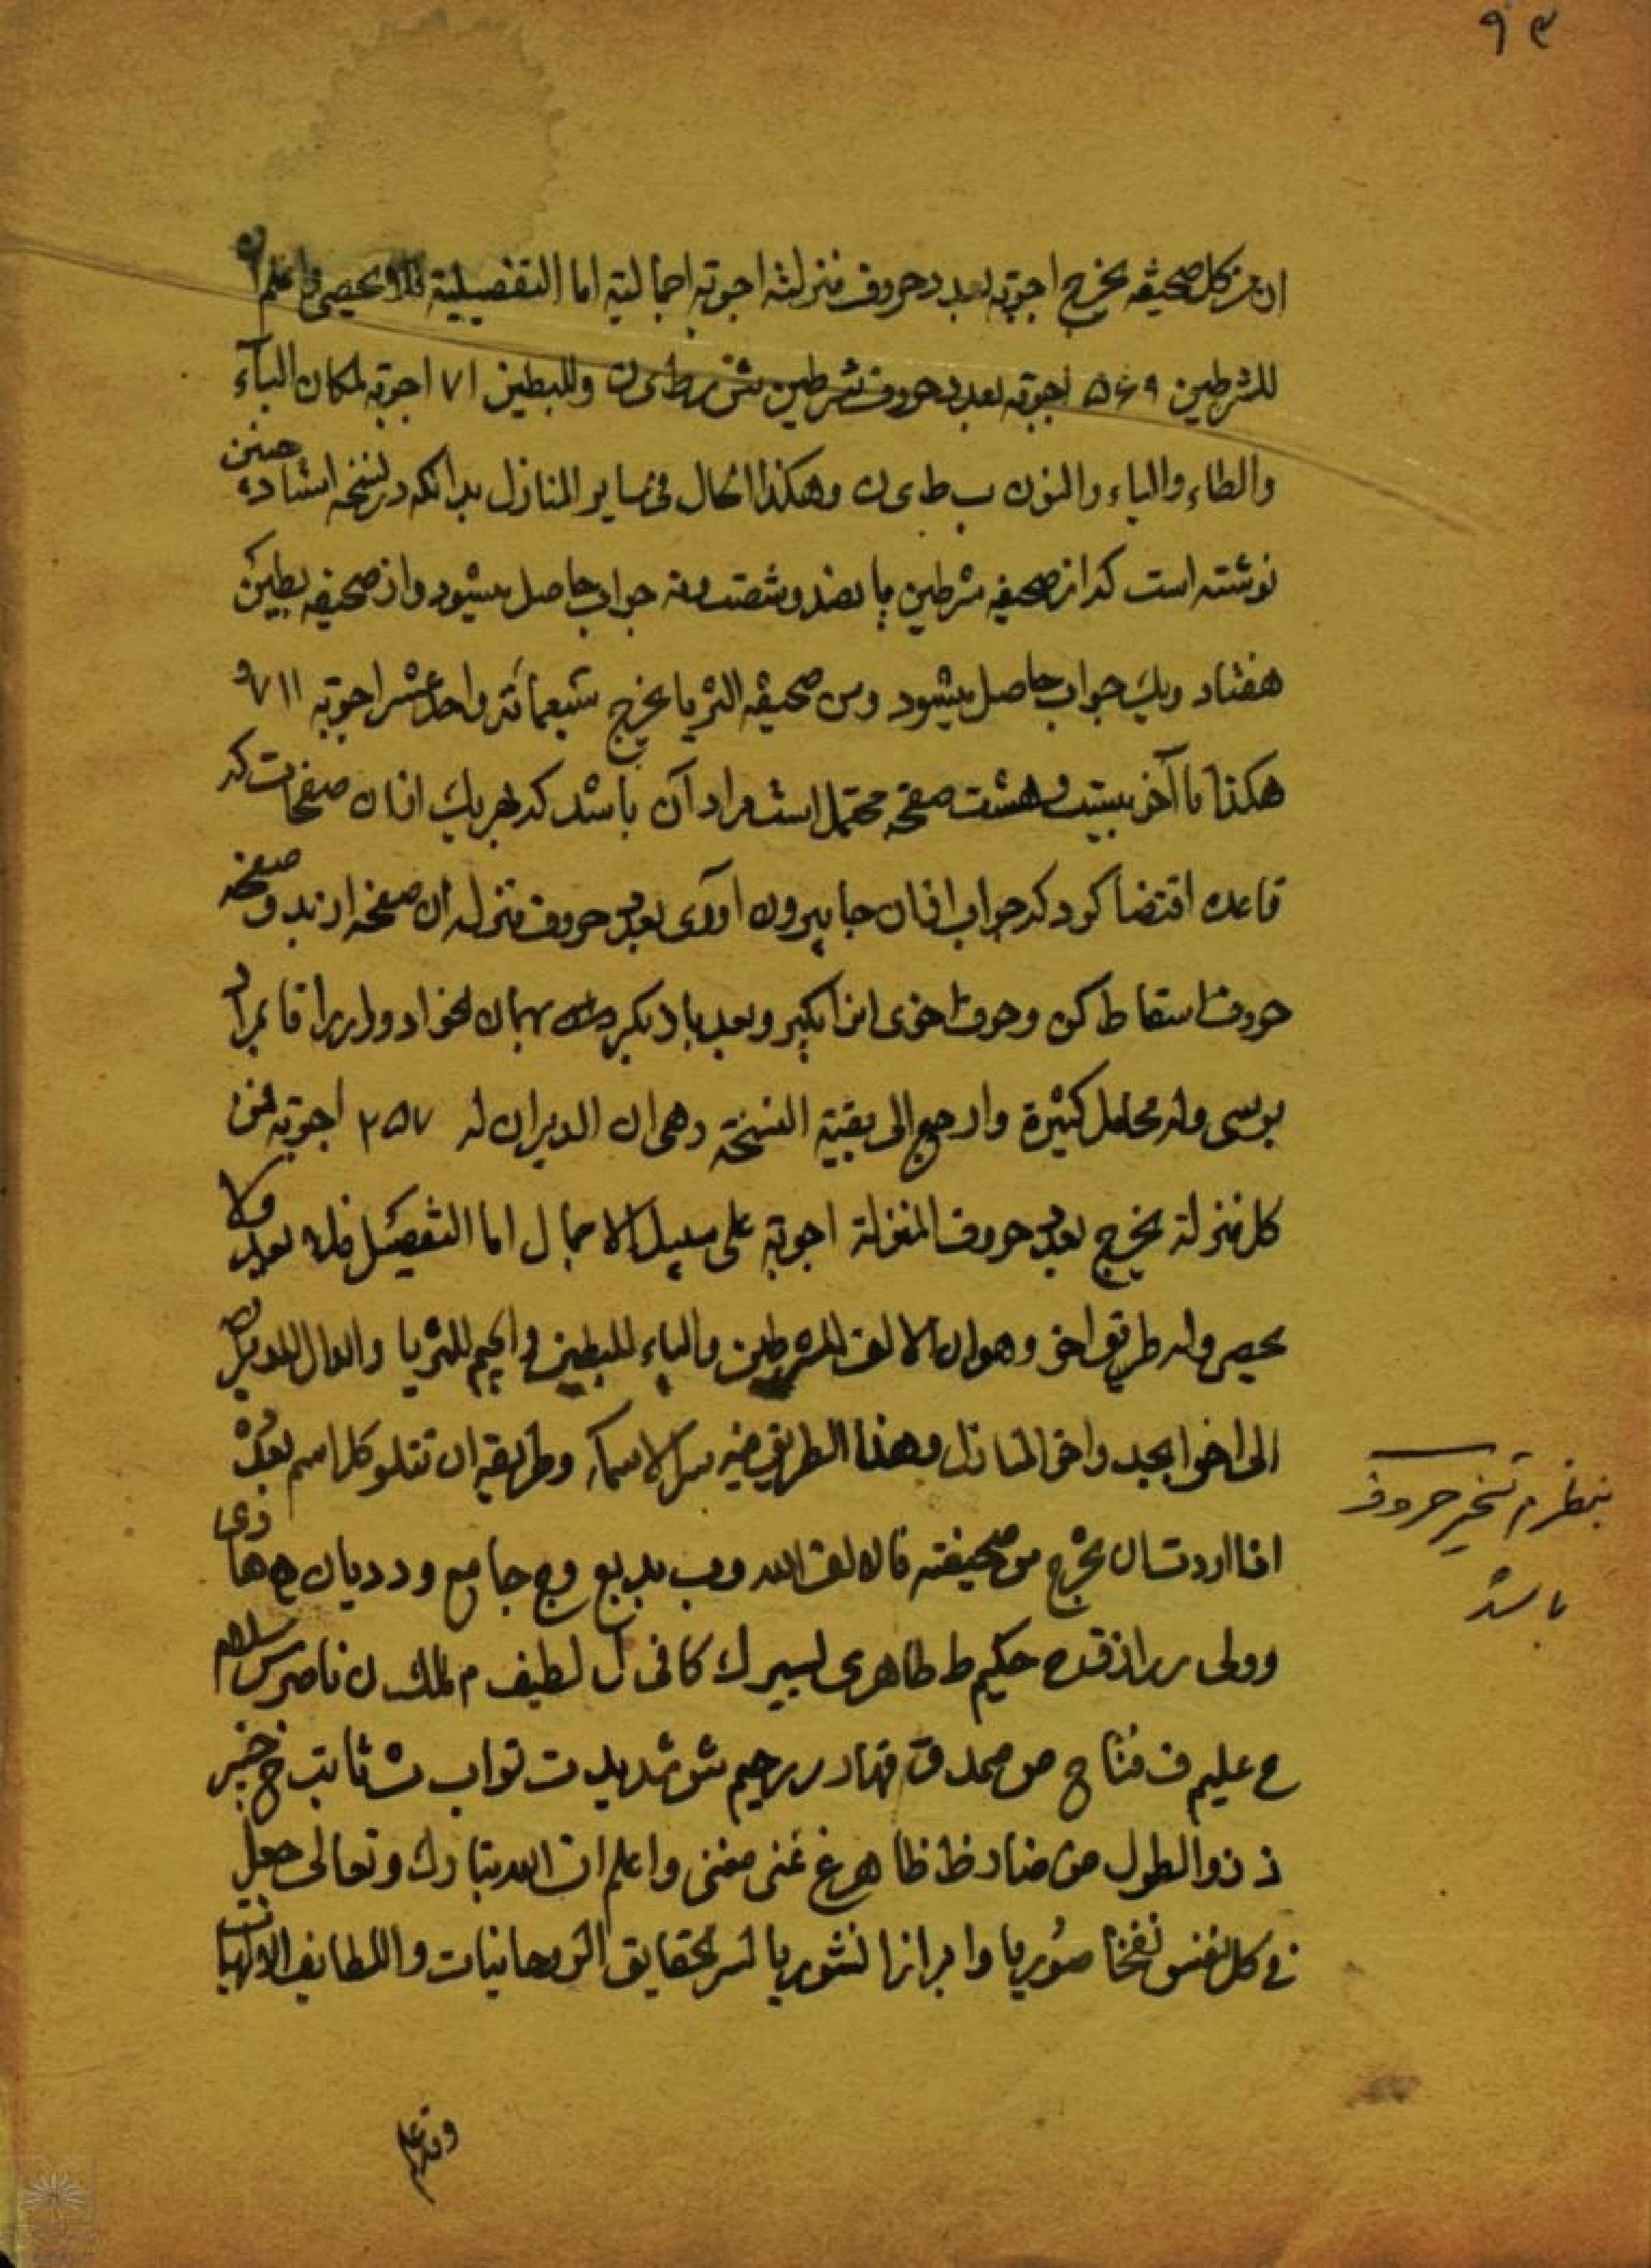 ۹۳
ان من كل صحيفه يخرج اجوبه بعدد حروف منزلته اجوبة اجمالية اما التفضيلية فلا يحصى و اعلم ان
للشرطين ۵۶۹ اجوبه بعدد حروف شرطين ش ر ط ى ن وللبطين ۷۱ اجوبة لمكان البآء
والطاء والياء والنون ب ط ى ن وهكذا الحال فى ساير المنازل بدانكه در نسخه استاد چنين
نوشته است كه از صحيفه شرطين پانصد و شصت و نه جواب حاصل ميشود و از صحيفه بطين
هفتاد ويك جواب حاصل ميشود ومن صحيفه الثريا يخرج سبعمائة واحد عشر اجوبه ۷۱۱ و
هكذا تا آخر بيست و هشت صفحه محتمل است مراد آن باشد كه بهر يك از ان صفحات كه
قاعده اقتضا كرد كه جواب از ان جا بيرون اورى بعدد حروف منزله ان صفحه از بد و صفحه
حروف اسقاط كن وحرف اخرى از ان بگير و بعد باديگر بهمان نحو ادوار را تا بمراد
برسى وله محامل كثيرة وارجع الى بقية النسخة وهى ان الدبران له ۲۵۷ اجوبه فمن
كل منزلة يخرج بعدد حروف المنزلة اجوبة على سبيل الاجمال اما التفصيل فلا يعد ولا
يحصى وله طريق اخر وهو ان الالف للشرطين والباء للبطين والجيم للثريا والدال للدبران
الى اخر ابجد واخر المنازل وهذا الطريق فيه سر الاسماء وطريقه ان تتلو كل اسم بعدده
اذا اردت ان يخرج من صحيفته فالالف الله وب بديع وج جامع ود ديان ه هادى
و ولى ز رازق ح حكيم ط طاهر ى يسير ك كافى ل لطيف م ملك ن ناصر س سلام
ع عليم ف فتاح ص صمد ق قهار ر رحيم ش شديد ت تواب ث ثابت خ خبير
ذ ذو الطول ض ضار ظ ظاهر غ غنى مغنى واعلم ان الله تبارك وتعالى جعل
فى كل نفس نفخا صوريا وابرازا نشوريا لسر الحقايق الروحانيات واللطايف الالهيات
بنظرم تسخير حروف
باشد